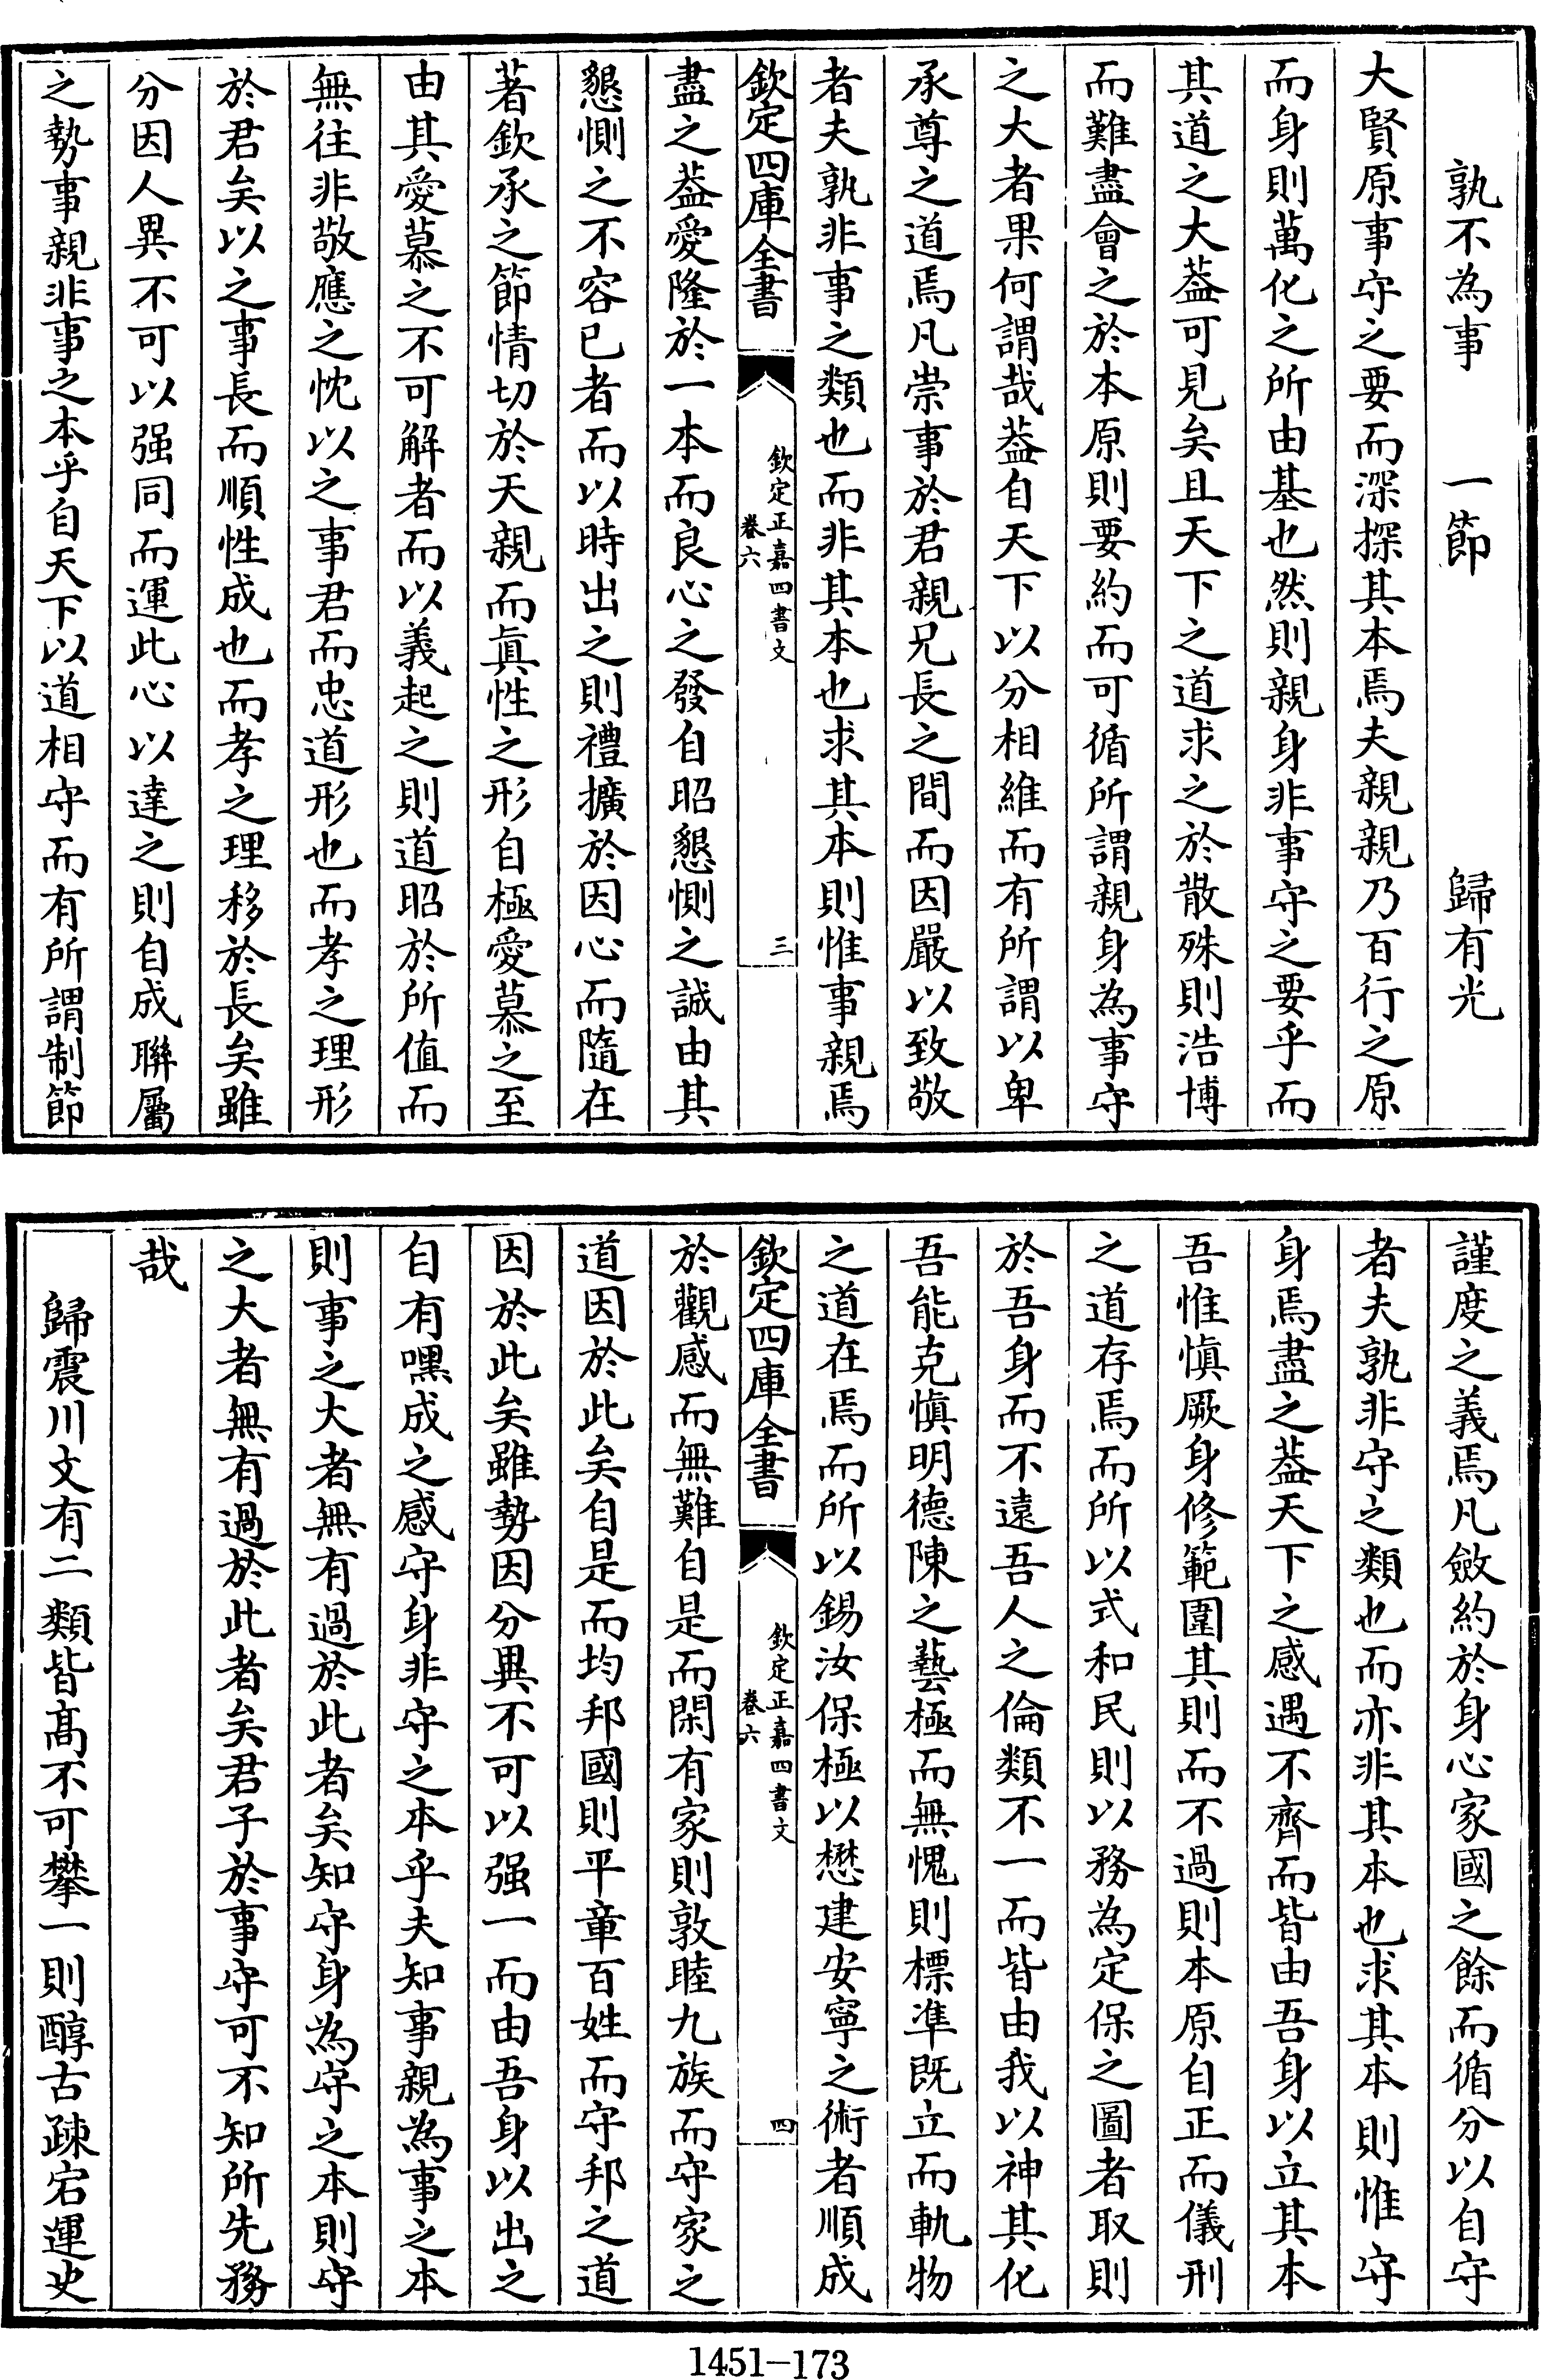 孰不為事　一節　歸有光
大賢原事守之要而深探其本焉夫親親乃百行之原
而身則萬化之所由基也然則親身非事守之要乎而
其道之大葢可見矣且天下之道求之於散殊則浩博
而難盡會之於本原則要約而可循所謂親身為事守
之大者果何謂哉葢自天下以分相維而有所謂以卑
承尊之道焉凡崇事於君親兄長之間而因嚴以致敬
者夫孰非事之類也而非其本也求其本則惟事親焉
欽定四庫全書
欽定正嘉四書文
卷六
三
盡之葢愛隆於一本而良心之發自昭懇惻之誠由其
懇惻之不容已者而以時出之則禮擴於因心而隨在
著欽承之節情切於天親而真性之形自極愛慕之至
由其愛慕之不可解者而以義起之則道昭於所值而
無往非敬應之忱以之事君而忠道形也而孝之理形
於君矣以之事長而順性成也而孝之理移於長矣雖
分因人異不可以强同而運此心以達之則自成聯屬
之勢事親非事之本乎自天下以道相守而有所謂制節
謹度之義焉凡斂約於身心家國之餘而循分以自守
者夫孰非守之類也而亦非其本也求其本則惟守
身焉盡之葢天下之感遇不齊而皆由吾身以立其本
吾惟慎厥身修範圍其則而不過則本原自正而儀刑
之道存焉而所以式和民則以務為定保之圖者取則
於吾身而不遠吾人之倫類不一而皆由我以神其化
吾能克慎明德陳之藝極而無愧則標凖既立而軌物
之道在焉而所以錫汝保極以懋建安寧之術者順成
欽定四庫全書
欽定正嘉四書文
卷六
四
於觀感而無難自是而閑有家則敦睦九族而守家之
道因於此矣自是而均邦國則平章百姓而守邦之道
因於此矣雖勢因分異不可以强一而由吾身以出之
自有嘿成之感守身非守之本乎夫知事親為事之本
則事之大者無有過於此者矣知守身為守之本則守
之大者無有過於此者矣君子於事守可不知所先務
哉
歸震川文有二類皆高不可攀一則醇古疎宕運史
1451-173